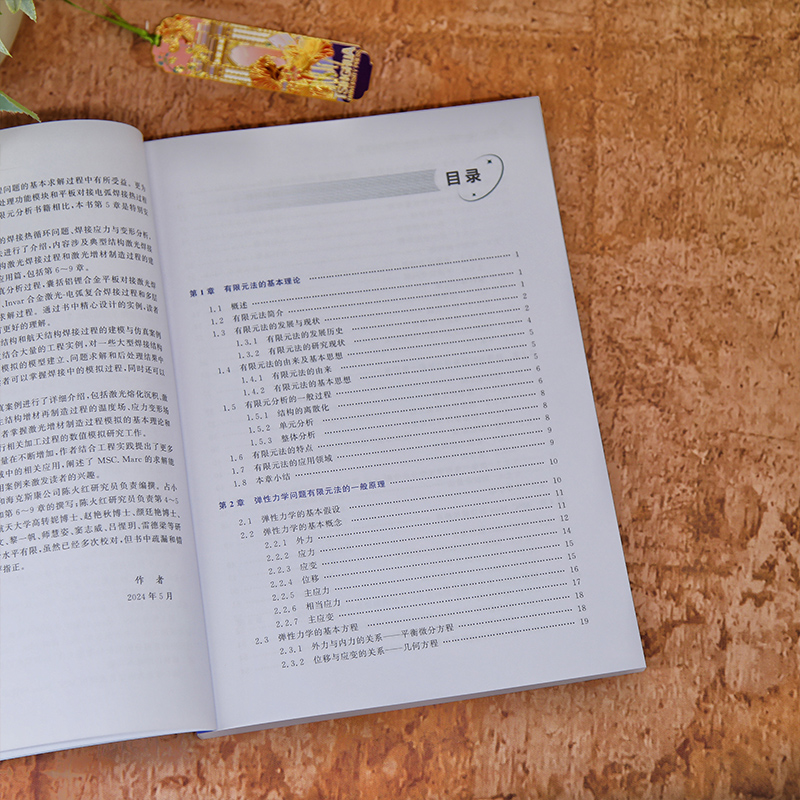 理问题的基本求解过程中有所受益。更为
处理功能模块和平板对接电弧焊接热过程
限元分析书籍相比，本书第5章是特别安
的焊接热循环问题、焊接应力与变形分析。
进行了介绍，内容涉及典型结构激光焊接
构激光焊接过程和激光增材制造过程的建
应用篇，包括第6~9章。
真分析过程，囊括铝锂合金平板对接激光焊
、Invar合金激光-电弧复合焊接过程和多层
求解过程。通过书中精心设计的实例，读者
有更好的理解。
结构和航天结构焊接过程的建模与仿真案例
结合大量的工程实例，对一些大型焊接结构
模拟的模型建立、问题求解和后处理结果中
者可以掌握焊接中的模拟过程，同时还可以
真案例进行了详细介绍，包括激光熔化沉积、激
生结构增材再制造过程的温度场、应力变形场
者掌握激光增材制造过程模拟的基本理论和
行相关加工过程的数值模拟研究工作。
量在不断增加，作者结合工程实践提出了更多
域中的相关应用，阐述了MSC. Marc的求解能
用案例来激发读者的兴趣。
和海克斯康公司陈火红研究员负责编撰，占小
和第6~9章的撰写；陈火红研究员负责第4~5
航天大学高转妮博士、赵艳秋博士、颜廷艳博士、
文、黎一帆、师慧姿、窦志威、吕惺玥、雷德梁等研
水平有限，虽然已经多次校对，但书中疏漏和错
评指正。
作 者
2024年5月
目录
第1章 有限元法的基本理论 1
1.1 概述 1
1.2 有限元法简介 1
1.3 有限元法的发展与现状 2
1.3.1 有限元法的发展历史 2
1.3.2 有限元法的研究现状 4
1.4 有限元法的由来及基本思想 5
1.4.1 有限元法的由来 5
1.4.2 有限元法的基本思想 5
1.5 有限元分析的一般过程 6
1.5.1 结构的离散化 6
1.5.2 单元分析 8
1.5.3 整体分析 8
1.6 有限元法的特点 8
1.7 有限元法的应用领域 9
1.8 本章小结 9
第2章 弹性力学问题有限元法的一般原理 10
2.1 弹性力学的基本假设 10
2.2 弹性力学的基本概念 11
2.2.1 外力 11
2.2.2 应力 12
2.2.3 应变 14
2.2.4 位移 15
2.2.5 主应力 15
2.2.6 相当应力 16
2.2.7 主应变 17
2.3 弹性力学的基本方程 18
2.3.1 外力与内力的关系——平衡微分方程 18
2.3.2 位移与应变的关系——几何方程 19